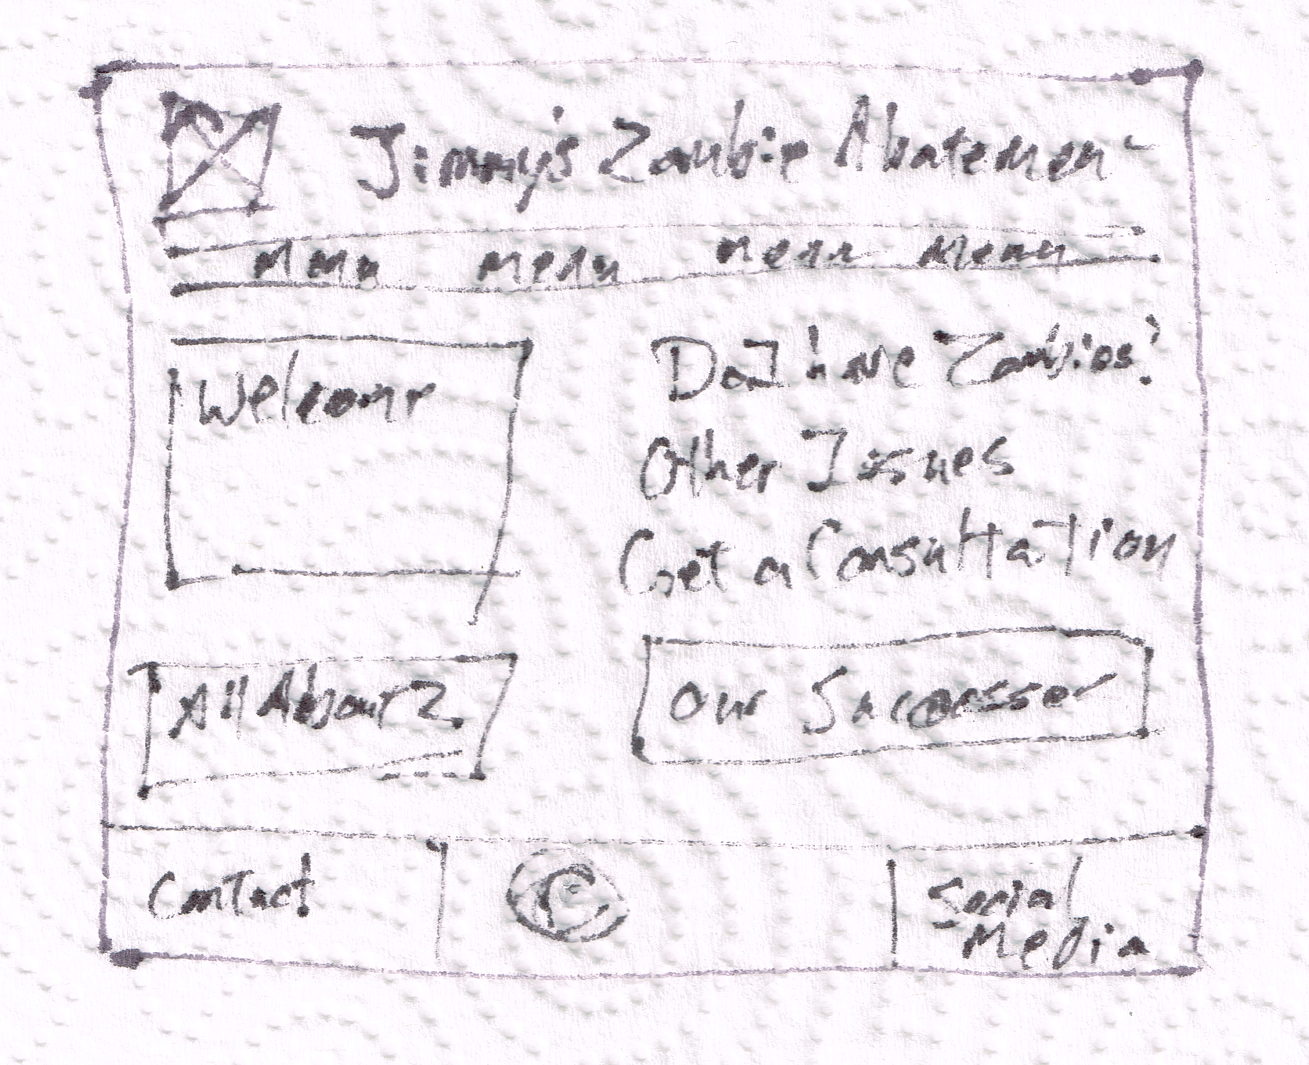 Jimmy's Zombie Abatemen
menu menu menu menu
Welcome
Do I have Zombies?
Other Issues
Get a Consultation
All About Z
Our Successes
Contact
©
Social
Media